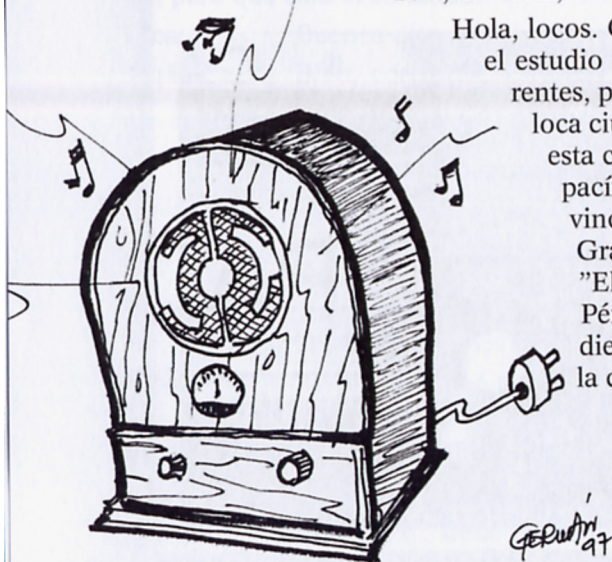 Hola, locos. C
el estudio
rentes, p
loca ci
esta c
pací
vinc
Gra
"El
Pé
die
la c
97